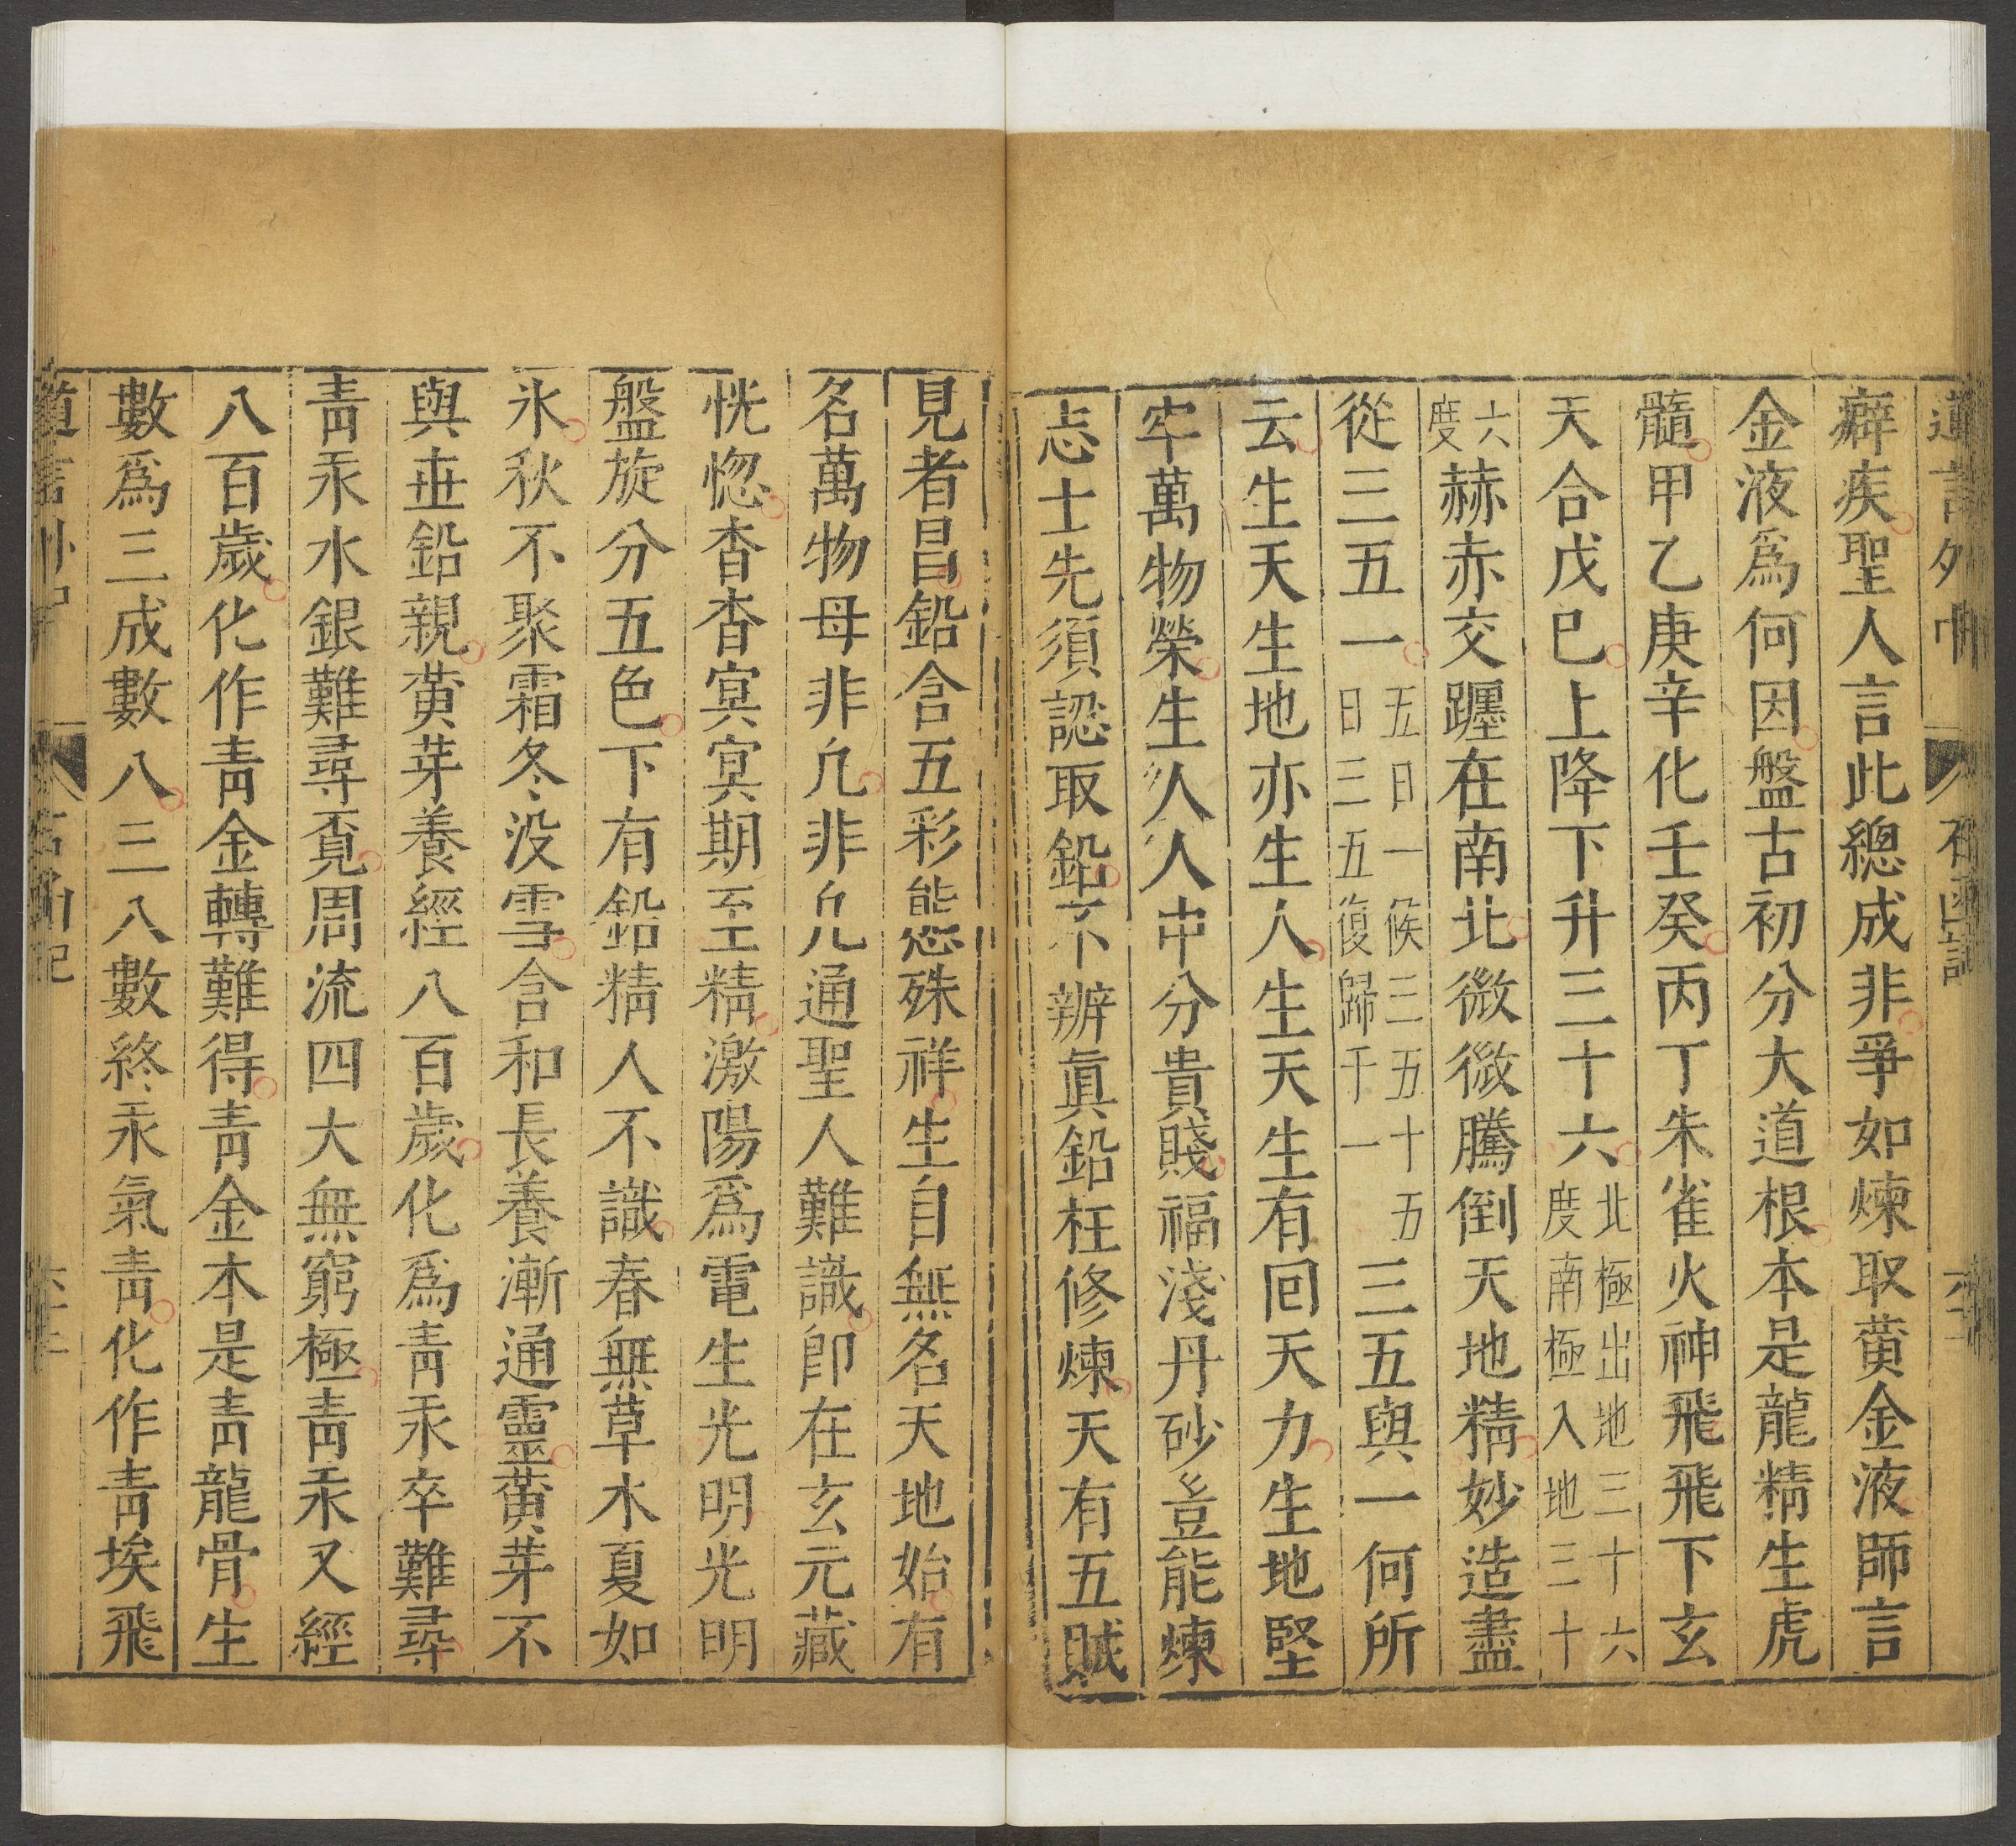 癖疾聖人言此總成非爭如煉取黃金液師言
金液爲何因盤古初分大道根本是龍精生虎
髓甲乙庚辛化壬癸丙丁朱雀火神飛飛下玄
天合戊巳上降下升三十六北極出地三十六度南極入地三十
六度赫赤交躔在南北微微騰倒天地精妙造盡
從三五一五日一候三五十五日三五復歸于一三五與一何所
云生天生地亦生人生天生有回天力生地堅
牢萬物榮生人人中分貴賤福淺丹砂豈能煉
志士先須認取鉛不辨眞鉛枉修煉天有五賊
見者昌鉛含五彩態殊祥生自無名天地始有
名萬物母非凡非凡通聖人難識卽在玄元藏
恍惚杳杳冥冥期至精激陽爲電生光明光明
盤旋分五色下有鉛精人不識春無草木夏如
氷秋不聚霜冬没雪含和長養漸通靈黃芽不
與世鉛親黃芽養經八百歲化爲靑汞卒難尋
靑汞水銀難尋覔周流四大無窮極靑汞又經
八百歲化作靑金轉難得靑金本是靑龍骨生
數爲三成數八三八數終汞氣靑化作靑埃飛